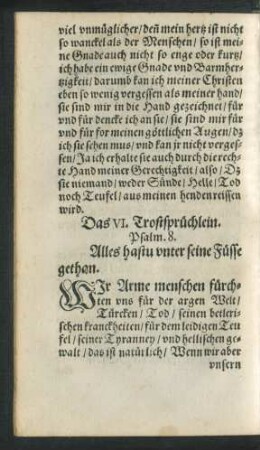 viel vnmüglicher / deñ mein hertz ist nicht
so wanckel als der Menschen / so ist mei-
ne Gnade auch nicht so enge oder kurtz /
ich habe ein ewige Gnade vnd Barmher-
tzigkeit / darumb kan ich meiner Christen
eben so wenig vergessen als meiner hand /
sie sind mir in die Hand gezeichnet / für
vnd für dencke ich an sie / sie sind mir für
vnd für for meinen göttlichen Augen / dz
ich sie sehen mus / vnd kan jr nicht verges-
sen / Ja ich erhalte sie auch durch die rech-
te Hand meiner Gerechtigkeit / also / Dz
sie niemand / weder Sünde / Helle / Tod
noch Teufel / aus meinen henden reissen
wird.
Das VI. Trostsprüchlein.
Psalm. 8.
Alles hastu vnter seine Füsse
gethan.
WIr Arme menschen fürch-
ten vns für der argen Welt /
Türcken / Tod / seinen betleri-
schen kranckheiten / für dem leidigen Teu
fel / seiner Tyranney / vnd hellischen ge-
walt / das ist natürlich / Wenn wir aber
vnsern